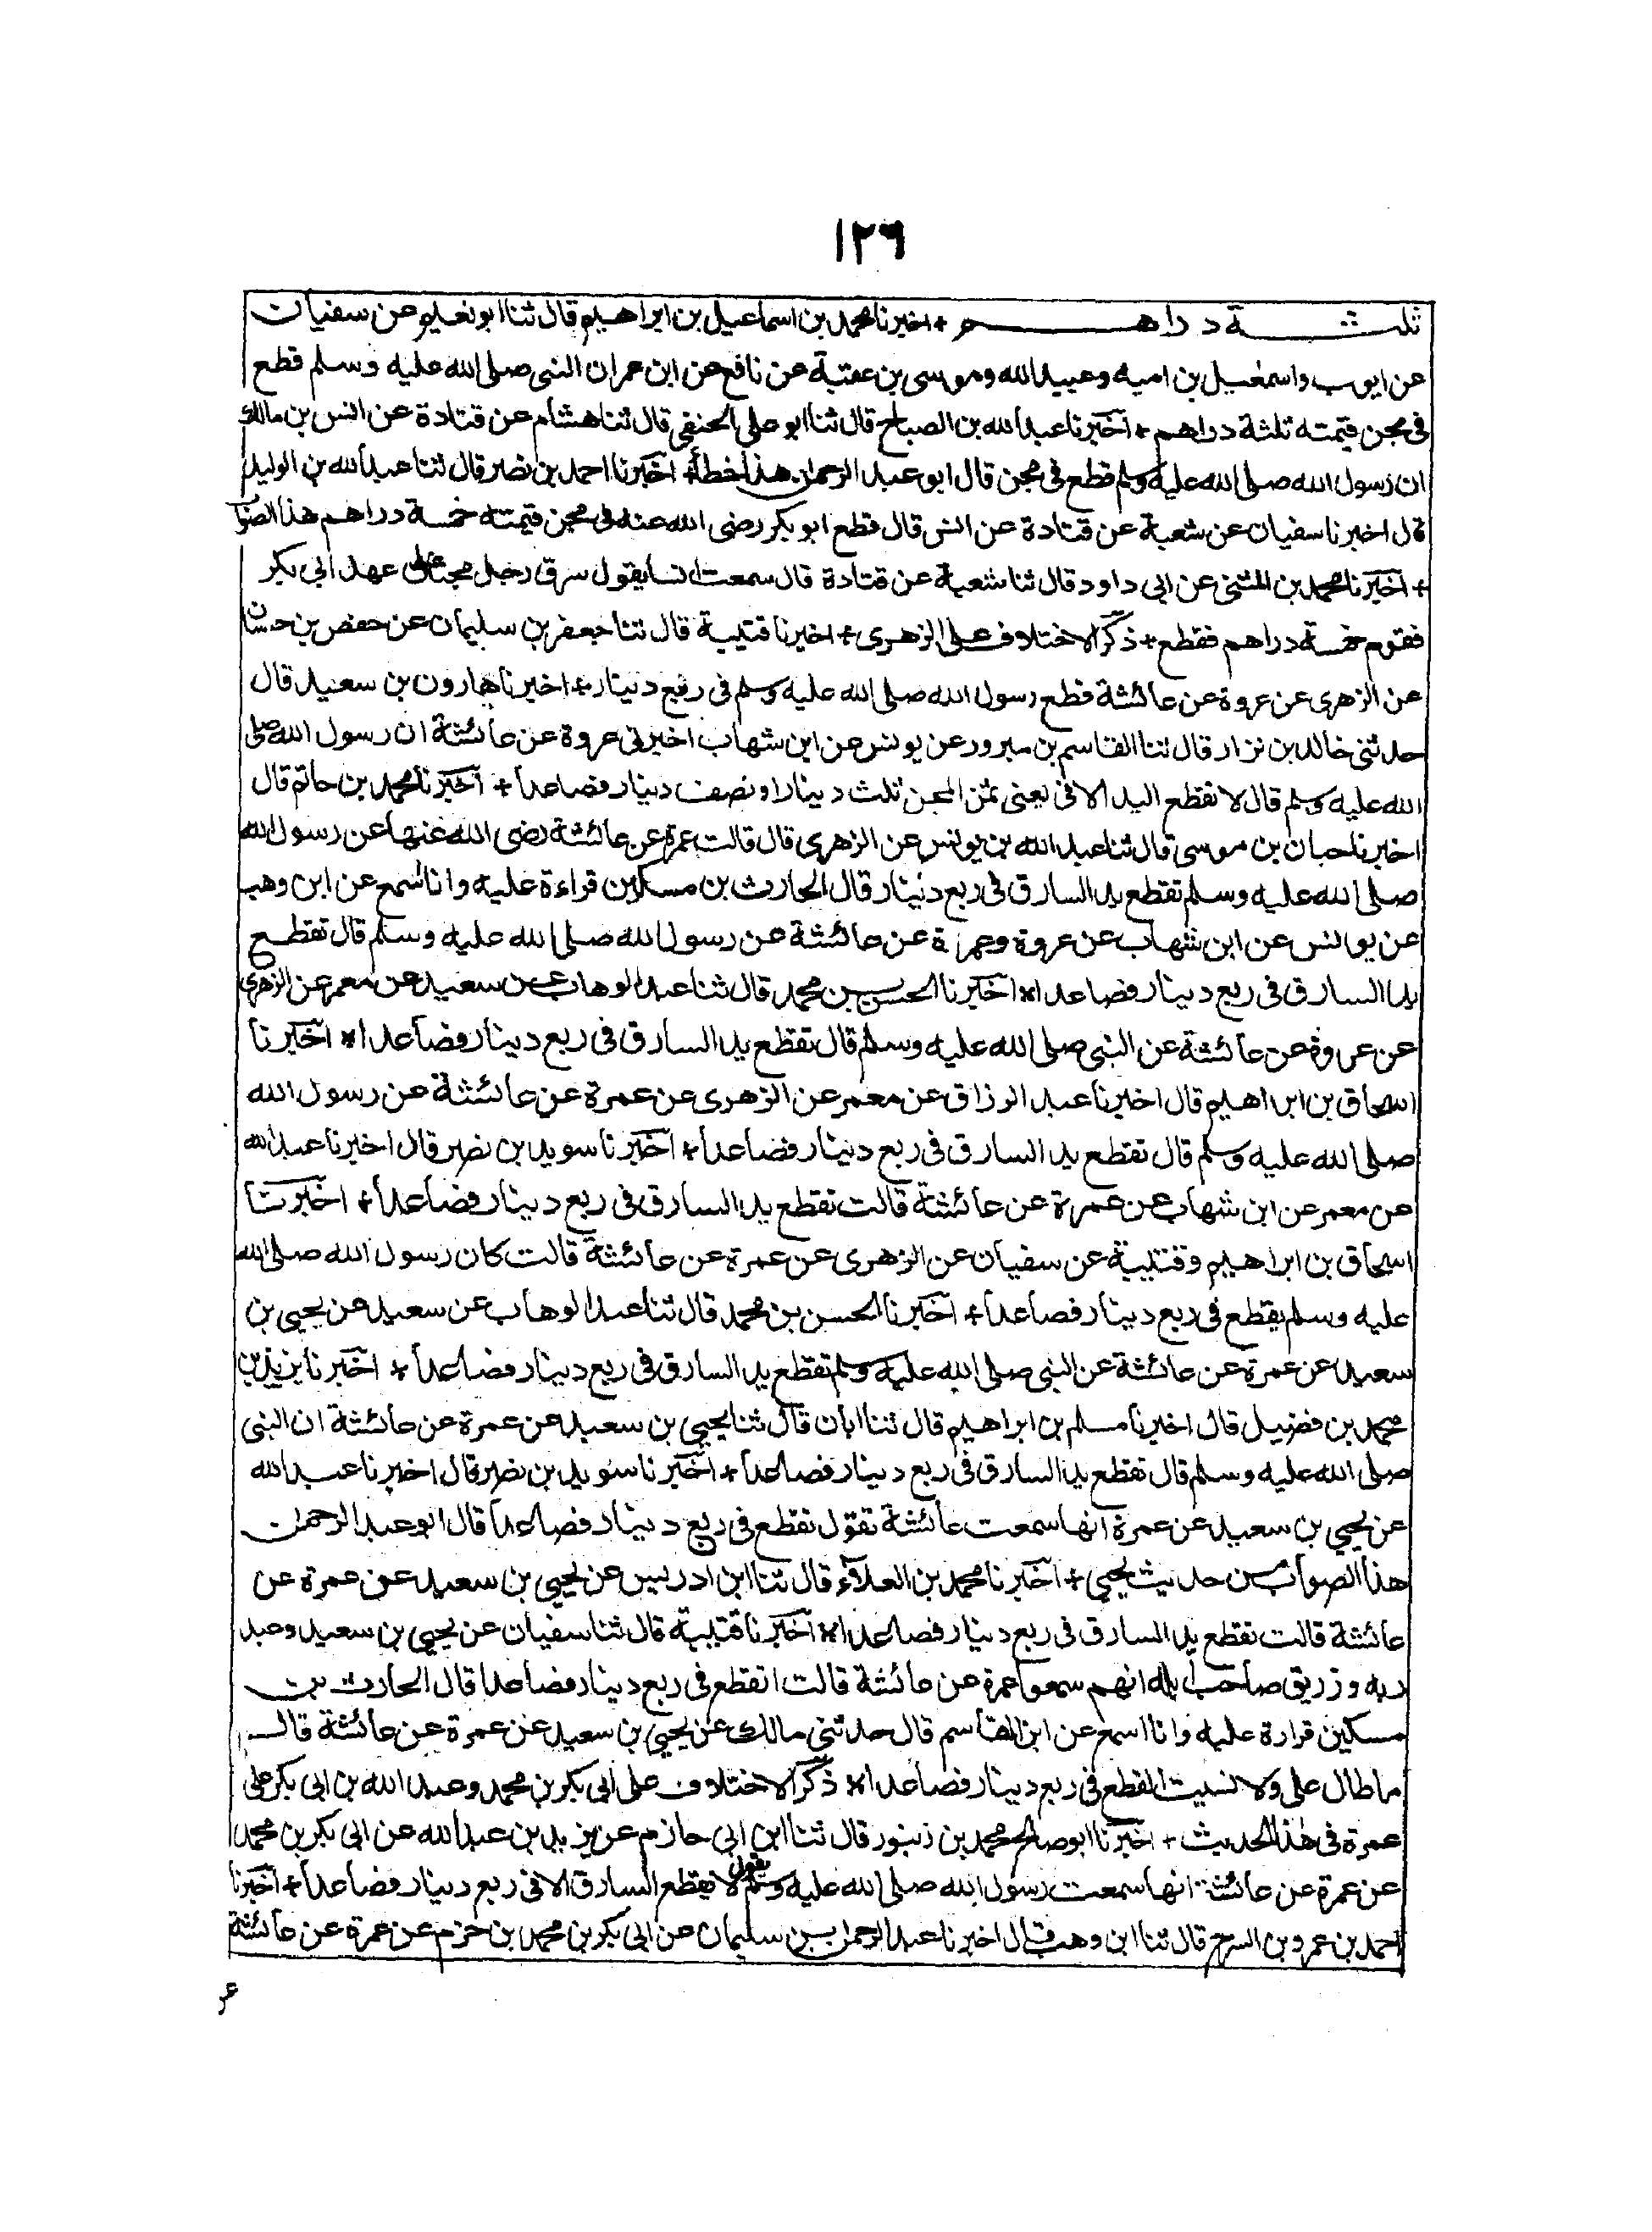 ١٢٦
ثلثة دراهم + اخبرنا محمد بن اسماعيل بن ابراهيم قال ثنا ابو نعيم عن سفيان
عن ايوب واسمعيل بن اميه وعبيد الله وموسى بن عقبة عن نافع عن ابن عمر ان النبى صلى الله عليه وسلم قطع
فى مجن قيمته ثلثة دراهم + اخبرنا عبد الله بن الصباح قال ثنا ابو على الحنفى قال ثنا هشام عن قتادة عن انس بن مالك
ان رسول الله صلى الله عليه وسلم قطع فى مجن قال ابو عبد الرحمن هذا خطأ + اخبرنا احمد بن نصر قال ثنا عبد الله بن الوليد
قال اخبرنا سفيان عن شعبة عن قتادة عن انس قال قطع ابو بكر رضى الله عنه فى مجن قيمته خمسة دراهم هذا الصواب
+ اخبرنا محمد بن المثنى عن ابى داود قال ثنا شعبة عن قتادة قال سمعت انسا يقول سرق رجل مجنا على عهد ابى بكر
فقوم خمسة دراهم فقطع + ذكر الاختلاف على الزهرى + اخبرنا قتيبة قال ثنا جعفر بن سليمان عن حفص بن حسان
عن الزهرى عن عروة عن عائشة قطع رسول الله صلى الله عليه وسلم فى ربع دينار + اخبرنا هارون بن سعيد قال
حدثنى خالد بن نزار قال ثنا القاسم بن مبرور عن يونس عن ابن شهاب اخبرنى عروة عن عائشة ان رسول الله صلى
الله عليه وسلم قال لا تقطع اليد الا فى يعنى ثمن المجن ثلث دينار او نصف دينار فصاعدا + اخبرنا محمد بن حاتم قال
اخبرنا حبان بن موسى قال ثنا عبد الله بن يونس عن الزهرى قال قالت عمرة عن عائشة رضى الله عنها عن رسول الله
صلى الله عليه وسلم تقطع يد السارق فى ربع دينار قال الحارث بن مسكين قراءة عليه وانا اسمع عن ابن وهب
عن يونس عن ابن شهاب عن عروة وعمرة عن عائشة عن رسول الله صلى الله عليه وسلم قال تقطع
يد السارق فى ربع دينار فصاعدا * اخبرنا الحسن بن محمد قال ثنا عبد الوهاب عن سعيد عن معمر عن الزهرى
عن عروة عن عائشة عن النبى صلى الله عليه وسلم قال تقطع يد السارق فى ربع دينار فصاعدا * اخبرنا
اسحاق بن ابراهيم قال اخبرنا عبد الرزاق عن معمر عن الزهرى عن عمرة عن عائشة عن رسول الله
صلى الله عليه وسلم قال تقطع يد السارق فى ربع دينار فصاعدا + اخبرنا سويد بن نصر قال اخبرنا عبد الله
عن معمر عن ابن شهاب عن عمرة عن عائشة قالت تقطع يد السارق فى ربع دينار فصاعدا + اخبرنا
اسحاق بن ابراهيم وقتيبة عن سفيان عن الزهرى عن عمرة عن عائشة قالت كان رسول الله صلى الله
عليه وسلم يقطع فى ربع دينار فصاعدا + اخبرنا الحسن بن محمد قال ثنا عبد الوهاب عن سعيد عن يحيى بن
سعيد عن عمرة عن عائشة عن النبى صلى الله عليه وسلم تقطع يد السارق فى ربع دينار فصاعدا + اخبرنا يزيد بن
محمد بن فضيل قال اخبرنا مسلم بن ابراهيم قال ثنا ابان قال ثنا يحيى بن سعيد عن عمرة عن عائشة ان النبى
صلى الله عليه وسلم قال تقطع يد السارق فى ربع دينار فصاعدا + اخبرنا سويد بن نصر قال اخبرنا عبد الله
عن يحيى بن سعيد عن عمرة انها سمعت عائشة تقول تقطع فى ربع دينار فصاعدا قال ابو عبد الرحمن
هذا الصواب من حديث يحيى + اخبرنا محمد بن العلاء قال ثنا ابن ادريس عن يحيى بن سعيد عن عمرة عن
عائشة قالت تقطع يد السارق فى ربع دينار فصاعدا * اخبرنا قتيبة قال ثنا سفيان عن يحيى بن سعيد وعبد
ربه وزريق صاحب ايله انهم سمعوا عمرة عن عائشة قالت القطع فى ربع دينار فصاعدا قال الحارث بن
مسكين قرارة عليه وانا اسمع عن ابن القاسم قال حدثنى مالك عن يحيى بن سعيد عن عمرة عن عائشة قالت
ما طال على ولا نسيت القطع فى ربع دينار فصاعدا * ذكر الاختلاف على ابى بكر بن محمد وعبد الله بن ابى بكر على
عمرة فى هذا الحديث + اخبرنا ابو صالح محمد بن زنبور قال ثنا ابن ابى حازم عن يزيد بن عبد الله عن ابى بكر بن محمد
عن عمرة عن عائشة انها سمعت رسول الله صلى الله عليه وسلم يقول لا يقطع السارق الا فى ربع دينار فصاعدا + اخبرنا
احمد بن عمرو بن السرح قال ثنا ابن وهب قال اخبرنا عبد الرحمن بن سليمان عن ابى بكر بن محمد بن حزم عن عمرة عن عائشة
عر